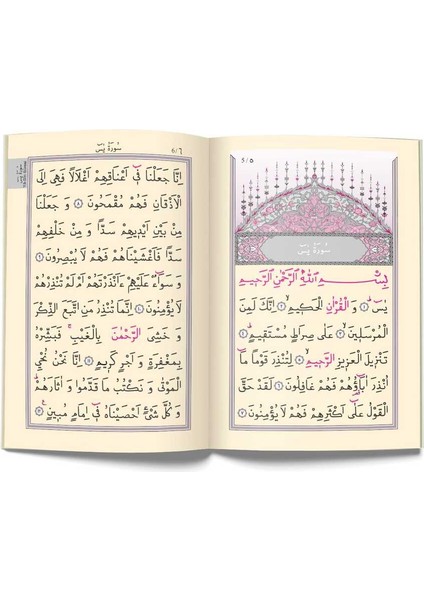 5/٥
سُورَةُ يٰسٓ
بِسْمِ اللّٰهِ الرَّحْمٰنِ الرَّحِيمِ
يٰسٓ ﴿١﴾ وَ الْقُرْاٰنِ الْحَكِيمِ ﴿٢﴾ اِنَّكَ لَمِنَ
الْمُرْسَلِينَ ﴿٣﴾ عَلٰى صِرَاطٍ مُسْتَقِيمٍ ﴿٤﴾
تَنْزِيلَ الْعَزِيزِ الرَّحِيمِ ﴿٥﴾ لِتُنْذِرَ قَوْمًا مَٓا
اُنْذِرَ اٰبَٓاؤُهُمْ فَهُمْ غَافِلُونَ ﴿٦﴾ لَقَدْ حَقَّ
الْقَوْلُ عَلٰٓى اَكْثَرِهِمْ فَهُمْ لَا يُؤْمِنُونَ ﴿٧﴾
6/٦
سُورَةُ يٰسٓ
اِنَّا جَعَلْنَا فِٓى اَعْنَاقِهِمْ اَغْلَالًا فَهِىَ اِلَى
الْاَذْقَانِ فَهُمْ مُقْمَحُونَ ﴿٨﴾ وَ جَعَلْنَا
مِنْ بَيْنِ اَيْدِيهِمْ سَدًّا وَ مِنْ خَلْفِهِمْ
سَدًّا فَاَغْشَيْنَاهُمْ فَهُمْ لَا يُبْصِرُونَ ﴿٩﴾
وَ سَوَٓاءٌ عَلَيْهِمْ ءَاَنْذَرْتَهُمْ اَمْ لَمْ تُنْذِرْهُمْ
لَا يُؤْمِنُونَ ﴿١٠﴾ اِنَّمَا تُنْذِرُ مَنِ اتَّبَعَ الذِّكْرَ
وَ خَشِىَ الرَّحْمٰنَ بِالْغَيْبِ ۚ فَبَشِّرْهُ
بِمَغْفِرَةٍ وَ اَجْرٍ كَرِيمٍ ﴿١١﴾ اِنَّا نَحْنُ نُحْىِ
الْمَوْتٰى وَ نَكْتُبُ مَا قَدَّمُوا وَ اٰثَارَهُمْ ۜ
وَ كُلَّ شَىْءٍ اَحْصَيْنَاهُ فِٓى اِمَامٍ مُبِينٍ ﴿١٢﴾